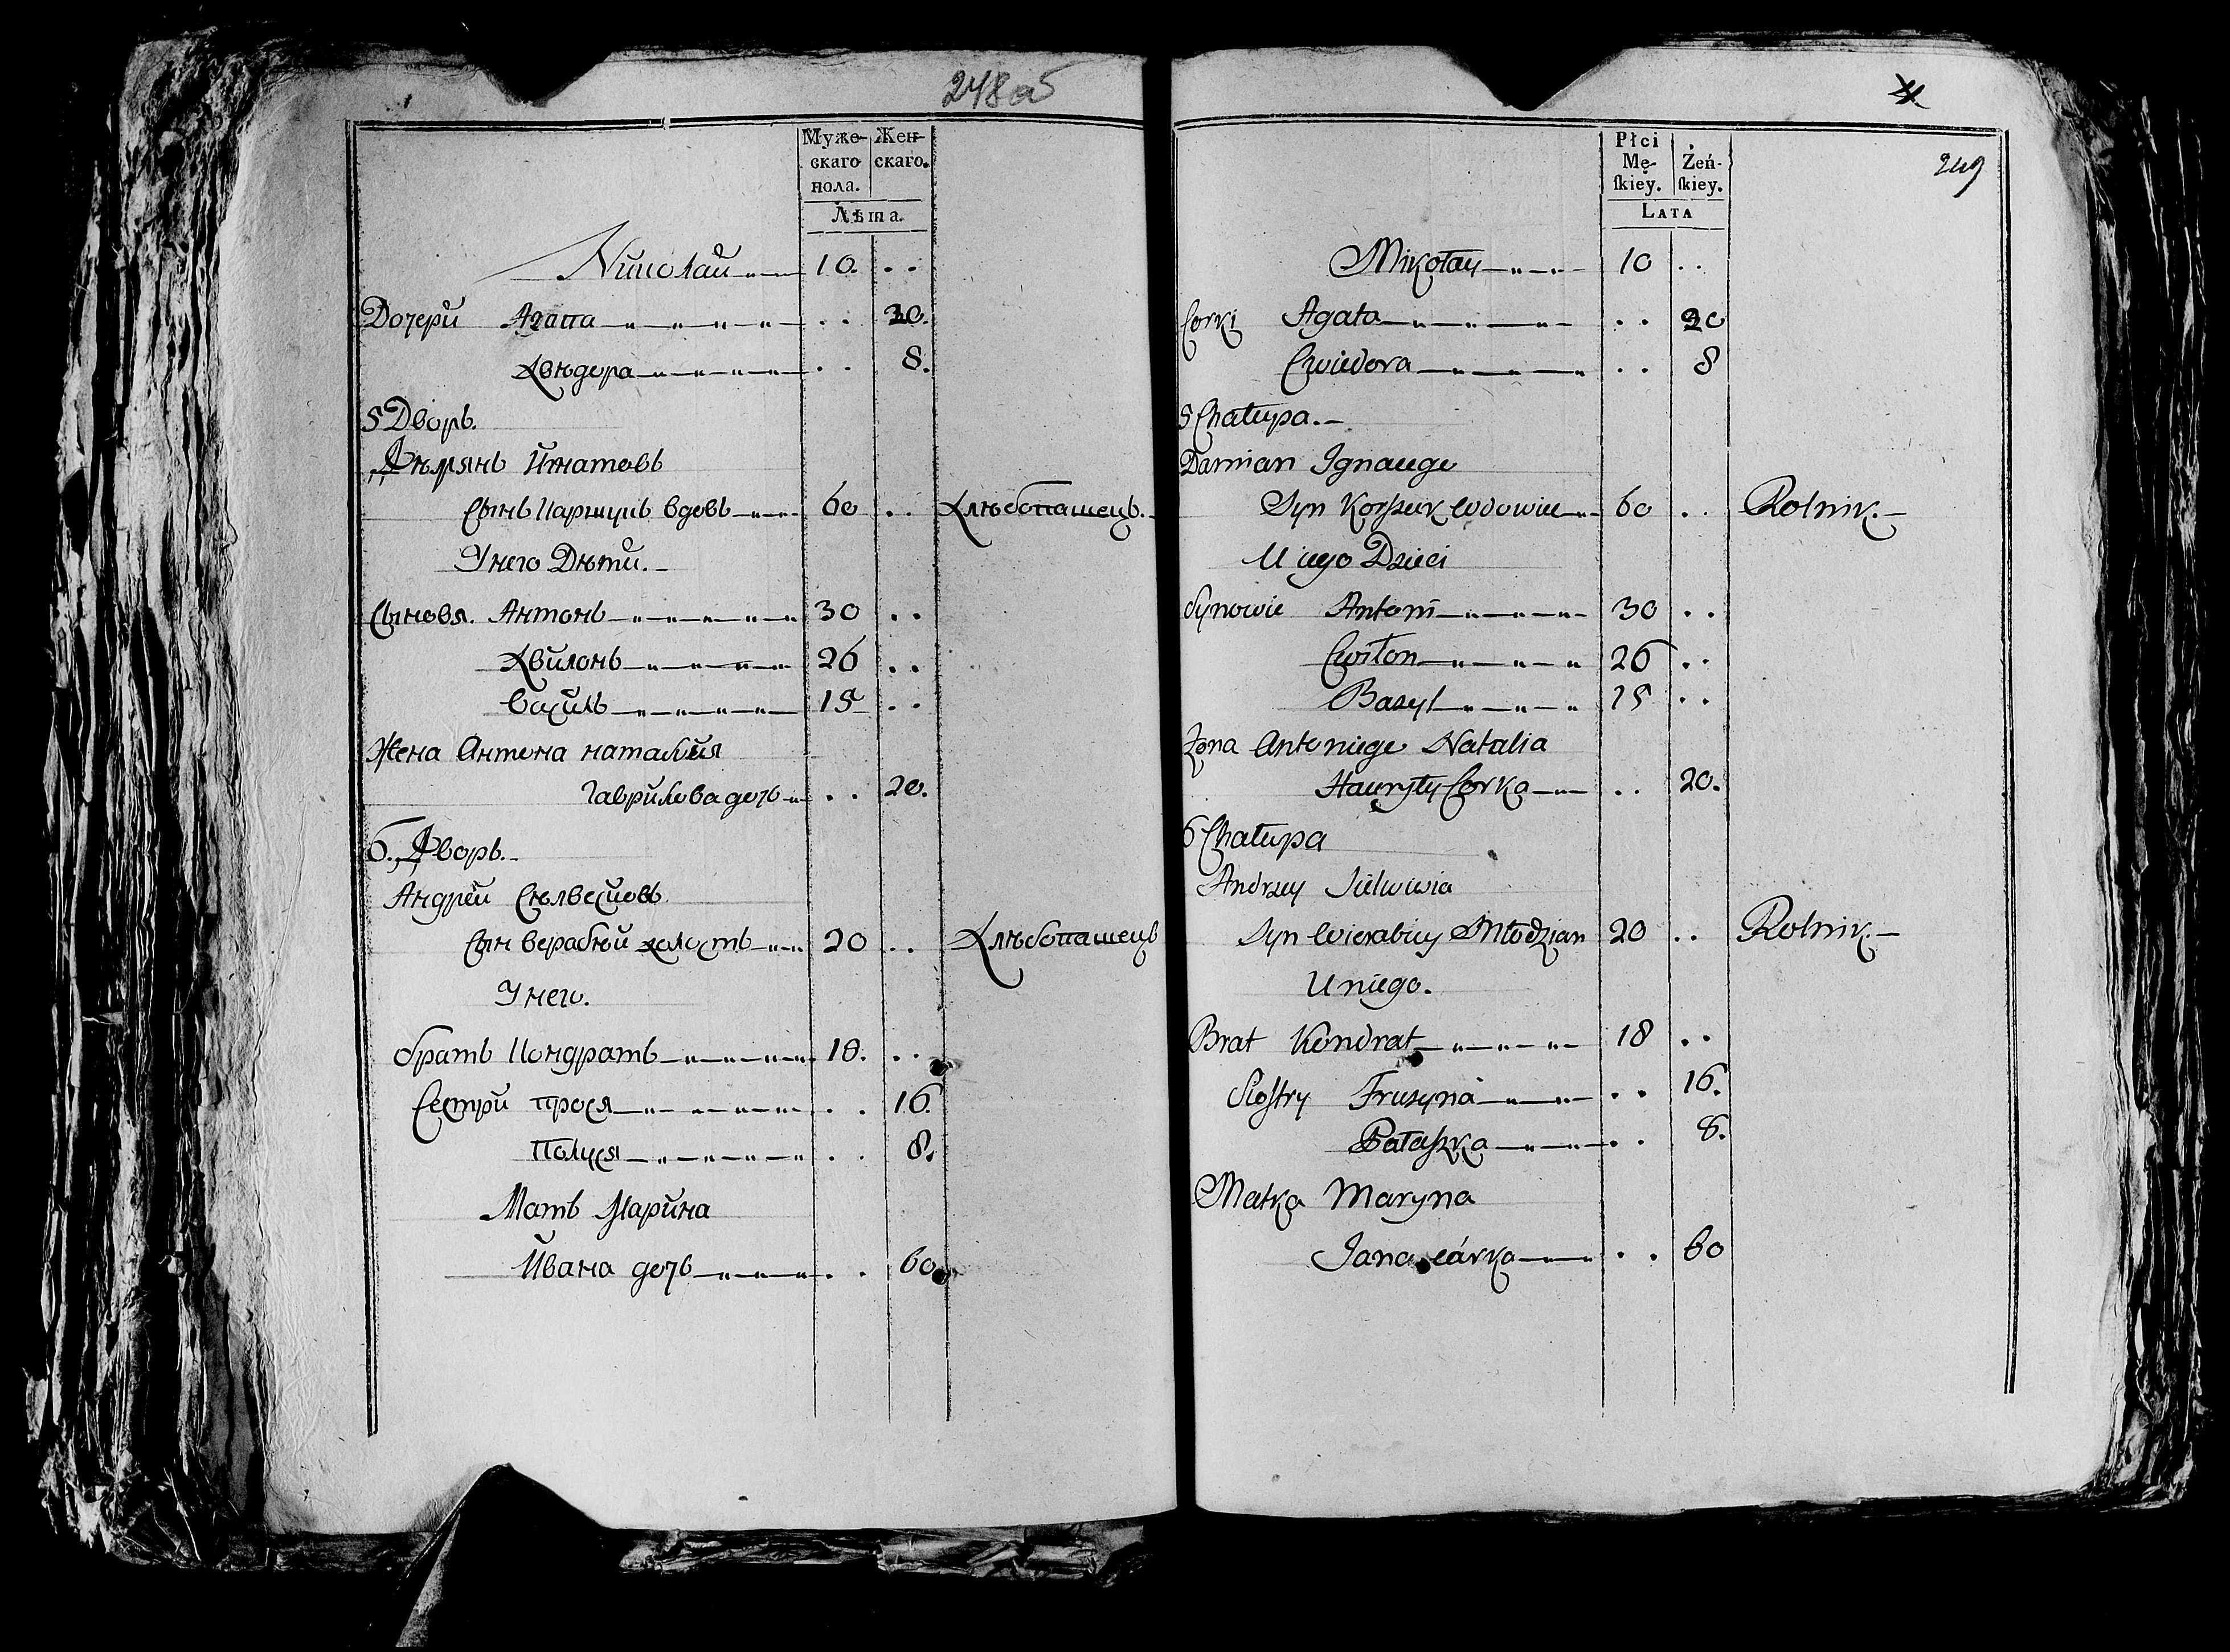 248об
Муже-
скаго
пола.
Жен-
скаго.
Лѣта.
Николай 10. . .
Дочери Агапа . . 20.
Хвѣдора . . 8.
5 Дворъ.
Дѣмянъ Игнатовъ
Сынъ Каршукъ вдовъ 60 . . Хлѣбопашецъ.
У него Дѣти.
Сыновя. Антонъ 30 . .
Хвилонъ 26 . .
Василь 15 . .
Жена Антона наталия
Гаврилова дочь . . 20.
6. Дворъ.
Андрей Сѣлвесцовъ
Сын верабей холостъ 20 . . Хлѣбопашецъ
У него.
братъ Кондратъ 18. . .
Сестри прося . . 16.
Палуся . . 8.
Мать Марина
Ивана дочь . . 60
249
Płci
Mę-
skiey.
Żeń-
skiey.
LATA
Mikołay 10 . .
Corki Agata . . 20
Chwiedora . . 8
5 Chałupa.
Damian Ignacego
Syn Korszuk wdowiec 60 . . Rolnik.
U iego Dzieci
Synowie Antoni 30 . .
Chwiłon 26 . .
Bazyl 15 . .
Zona Antoniego Natalia
Hauryły Corka . . 20.
6 Chałupa
Andrzey
Syn Wierabiey Młodzian 20 . . Rolnik.
U niego.
Brat Kondrat 18 . .
Siostry Fruzyna . . 16.
Pałaszka . . 8.
Matka Maryna
Jana cárka . . 60